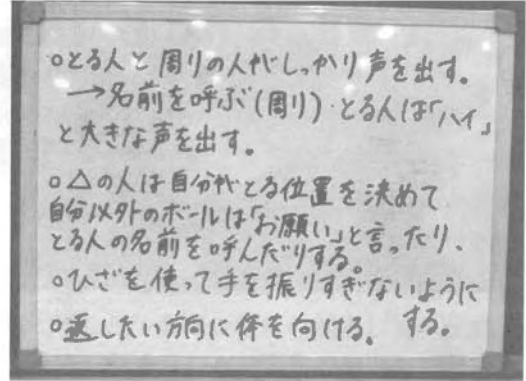 ○とる人と周りの人がしっかり声を出す。
→名前を呼ぶ(周り)・とる人は「ハイ」
と大きな声を出す。
○△の人は自分がとる位置を決めて
自分以外のボールは「お願い」と言ったり、
とる人の名前を呼んだりする。
○ひざを使って手を振りすぎないように
する。
○返したい方向に体を向ける。